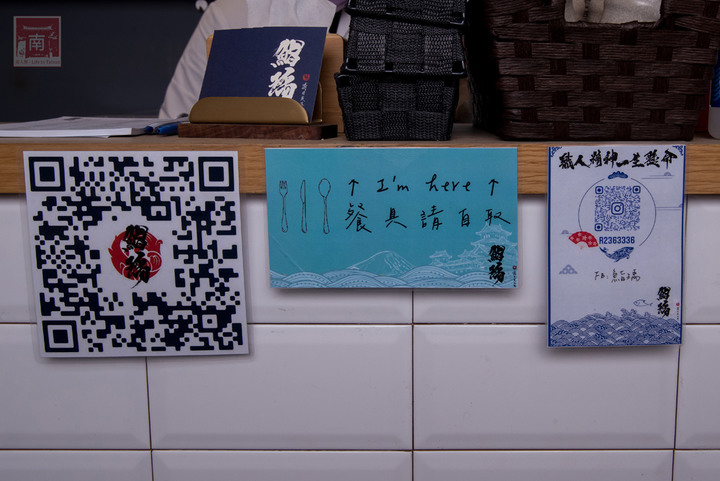 南
鮨瑀
鮨瑀
↑ I'm here ↑
餐具請自取
鮨瑀
職人精神一生懸命
R2363336
鮨瑀